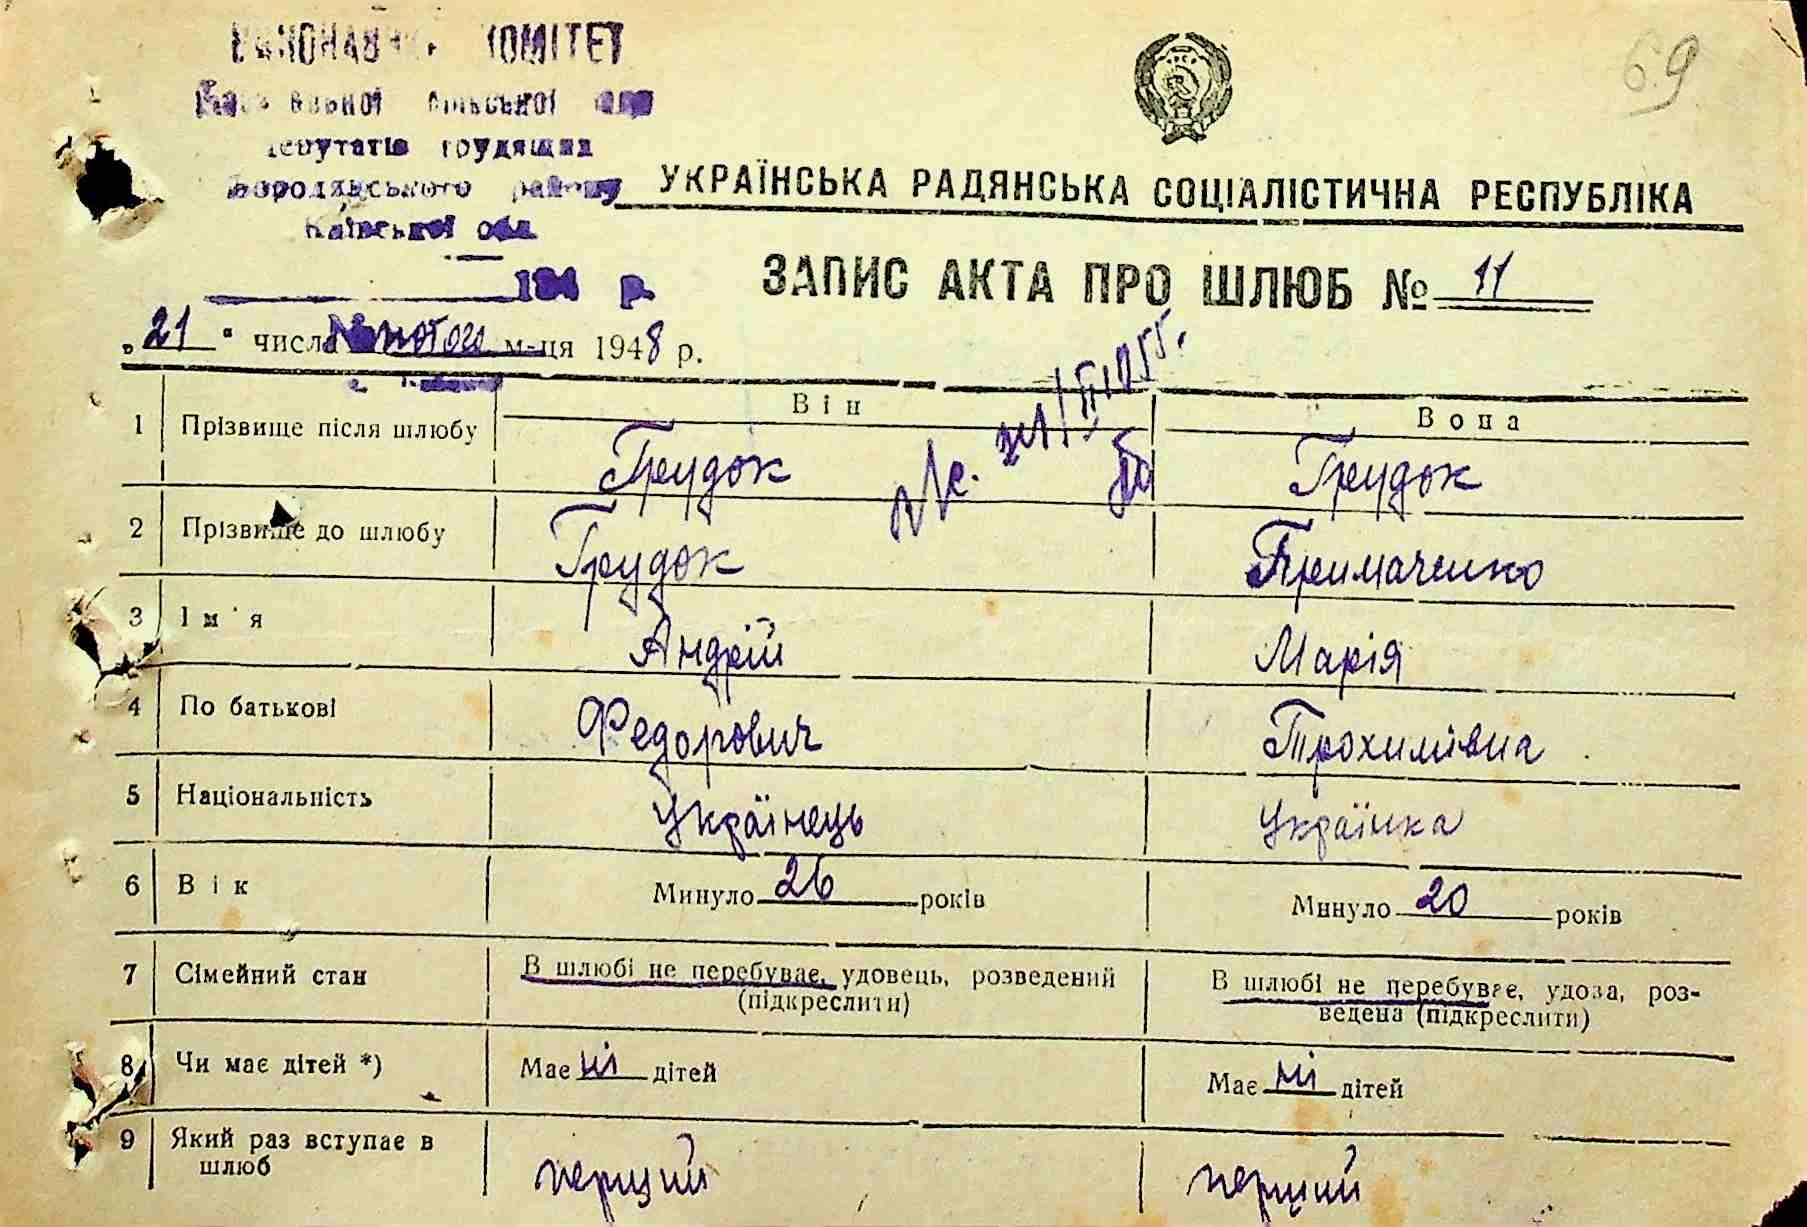 69
КОМІТЕТ
сільської
депутатів трудящих
Бородянського району
Київської обл.
194 р.
УКРАЇНСЬКА РАДЯНСЬКА СОЦІАЛІСТИЧНА РЕСПУБЛІКА
ЗАПИС АКТА ПРО ШЛЮБ № 11
„21“ числа Лютого м-ця 1948 р.
Він Вона
1 Прізвище після шлюбу Грудок Грудок
2 Прізвище до шлюбу Грудок Примаченко
3 Ім'я Андрій Марія
4 По батькові Федорович Трохимівна
5 Національність Українець Українка
6 Вік Минуло 26 років Минуло 20 років
7 Сімейний стан В шлюбі не перебуває, удовець, розведений (підкреслити) В шлюбі не перебуває, удова, роз-
ведена (підкреслити)
8 Чи має дітей *) Має ні дітей Має ні дітей
9 Який раз вступає в
шлюб перший перший